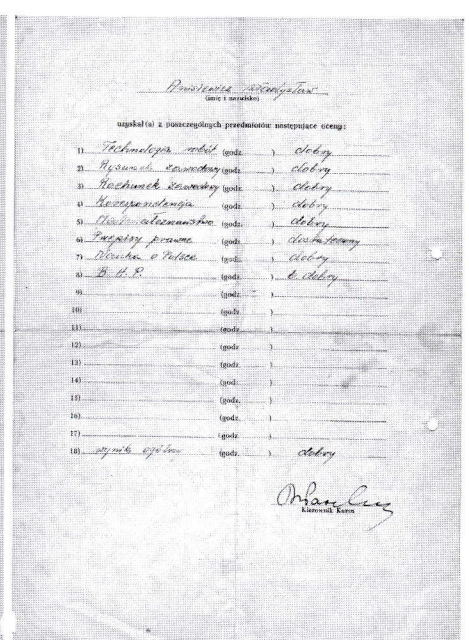 Anisiewicz Władysław
(imię i nazwisko)
uzyskał(a) z poszczególnych przedmiotów następujące oceny:
1) Technologia robót (godz. ) dobry
2) Rysunek zawodowy (godz. ) dobry
3) Rachunek zawodowy (godz. ) dobry
4) Korespondencja (godz. ) dobry
5) Materiałoznawstwo (godz. ) dobry
6) Przepisy prawne (godz. ) dostateczny
7) Nauka o Polsce (godz. ) dobry
8) B.H.P. (godz. ) b. dobry
9) (godz. )
10) (godz. )
11) (godz. )
12) (godz. )
13) (godz. )
14) (godz. )
15) (godz. )
16) (godz. )
17) (godz. )
18) wynik ogólny (godz. ) dobry
Kierownik Kursu